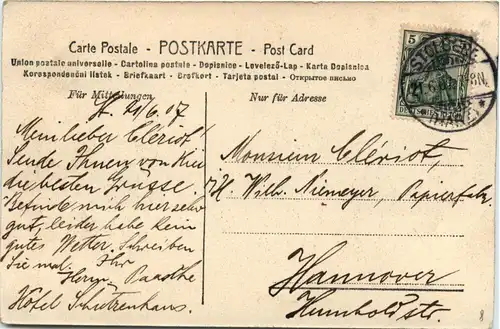 Carte Postale - POSTKARTE - Post Card
Union postale universelle - Cartolina postale - Dopisnice - Levelező-Lap - Karta Dopisnica
Korespondenční listek - Briefkaart - Brefkort - Tarjeta postal - Открытое письмо
Für Mitteilungen
Nur für Adresse
St. 21/6.07
Mein lieber Clériot!
Sende Ihnen von hier
die besten Grüsse.
Befinde mich hier sehr
gut, leider habe kein
gutes Wetter. Schreiben
Sie mal. Ihr
Herm.
Hôtel Schützenhaus.
Monsieur Clériot,
Wilh. Niemeyer, Papierfabr.
Hannover
Humboldtstr.
5
STOLBERG
(HARZ)
8